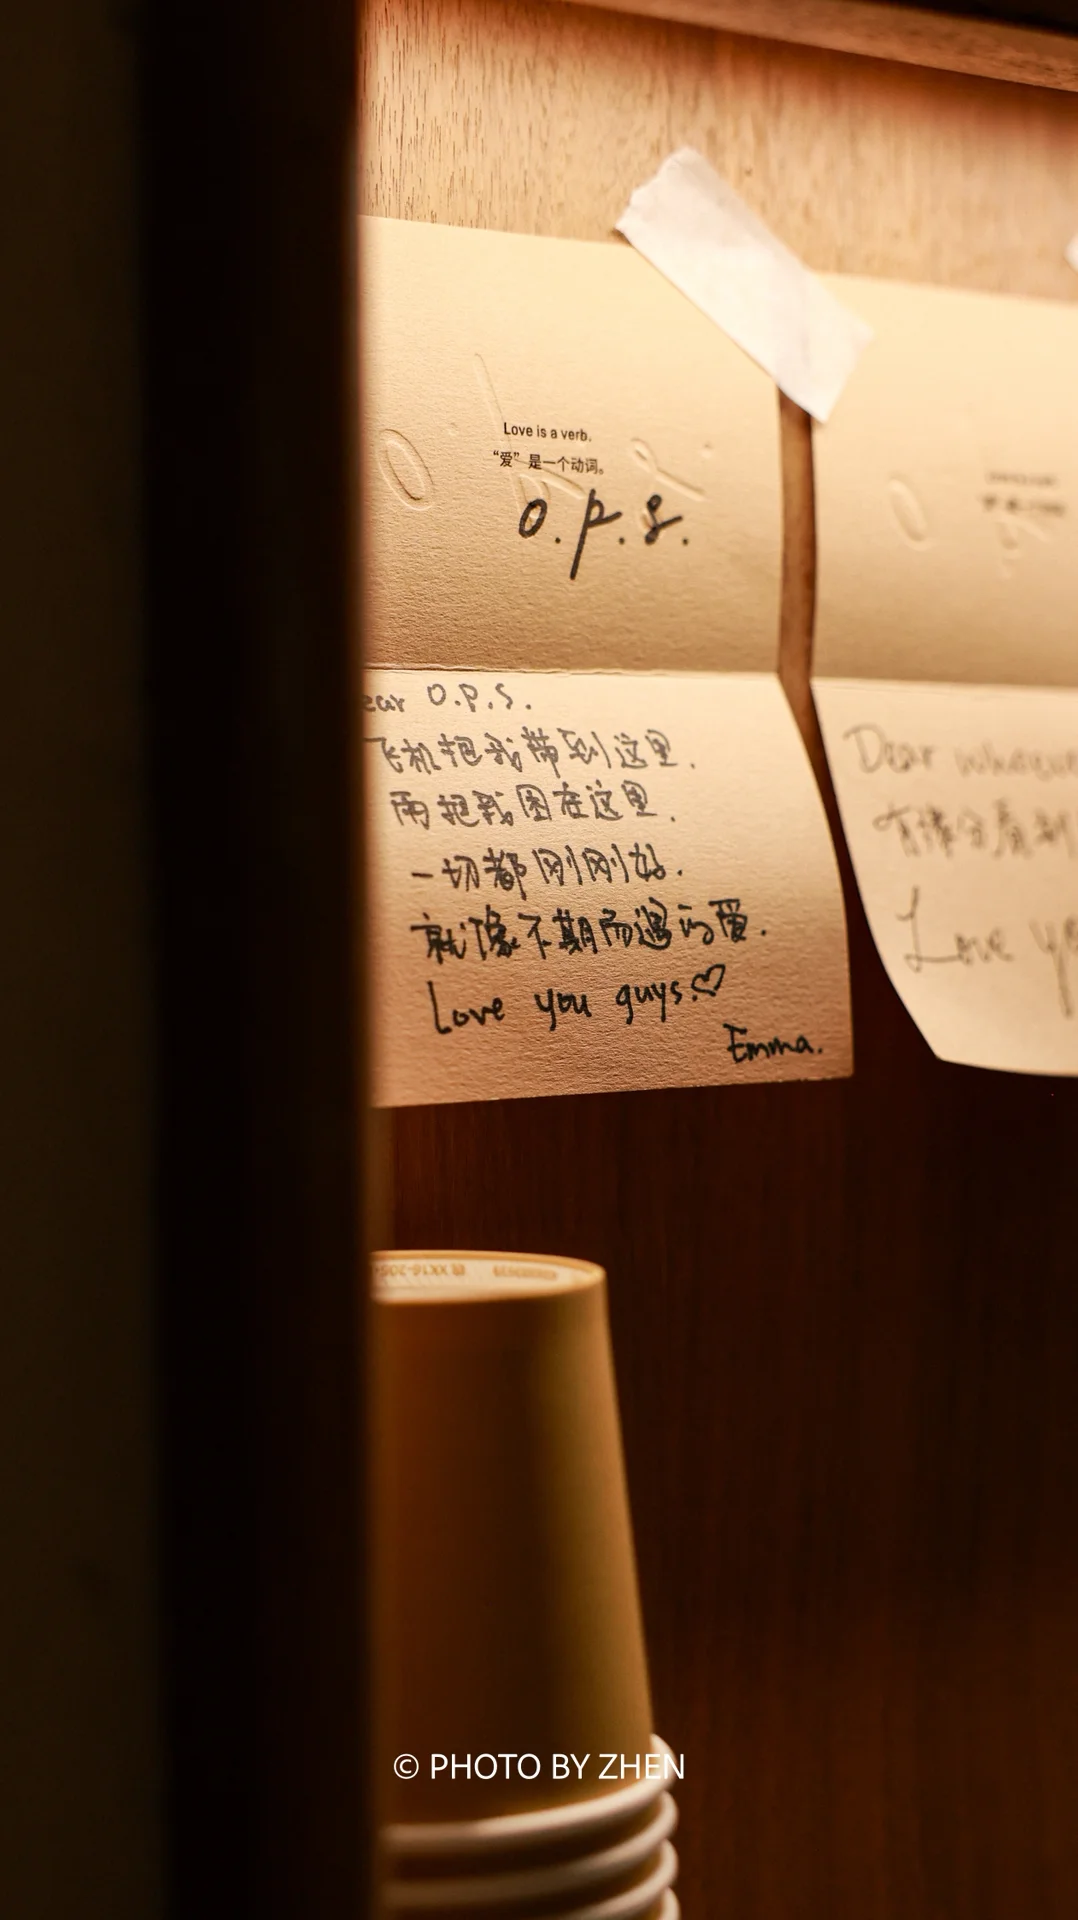 Love is a verb.
“爱”是一个动词。
o.p.s.
ear O.P.S.
飞机把我带到这里.
雨把我困在这里.
一切都刚刚好.
就像不期而遇的爱.
Love you guys.♡
Emma.
Dear
Love
© PHOTO BY ZHEN